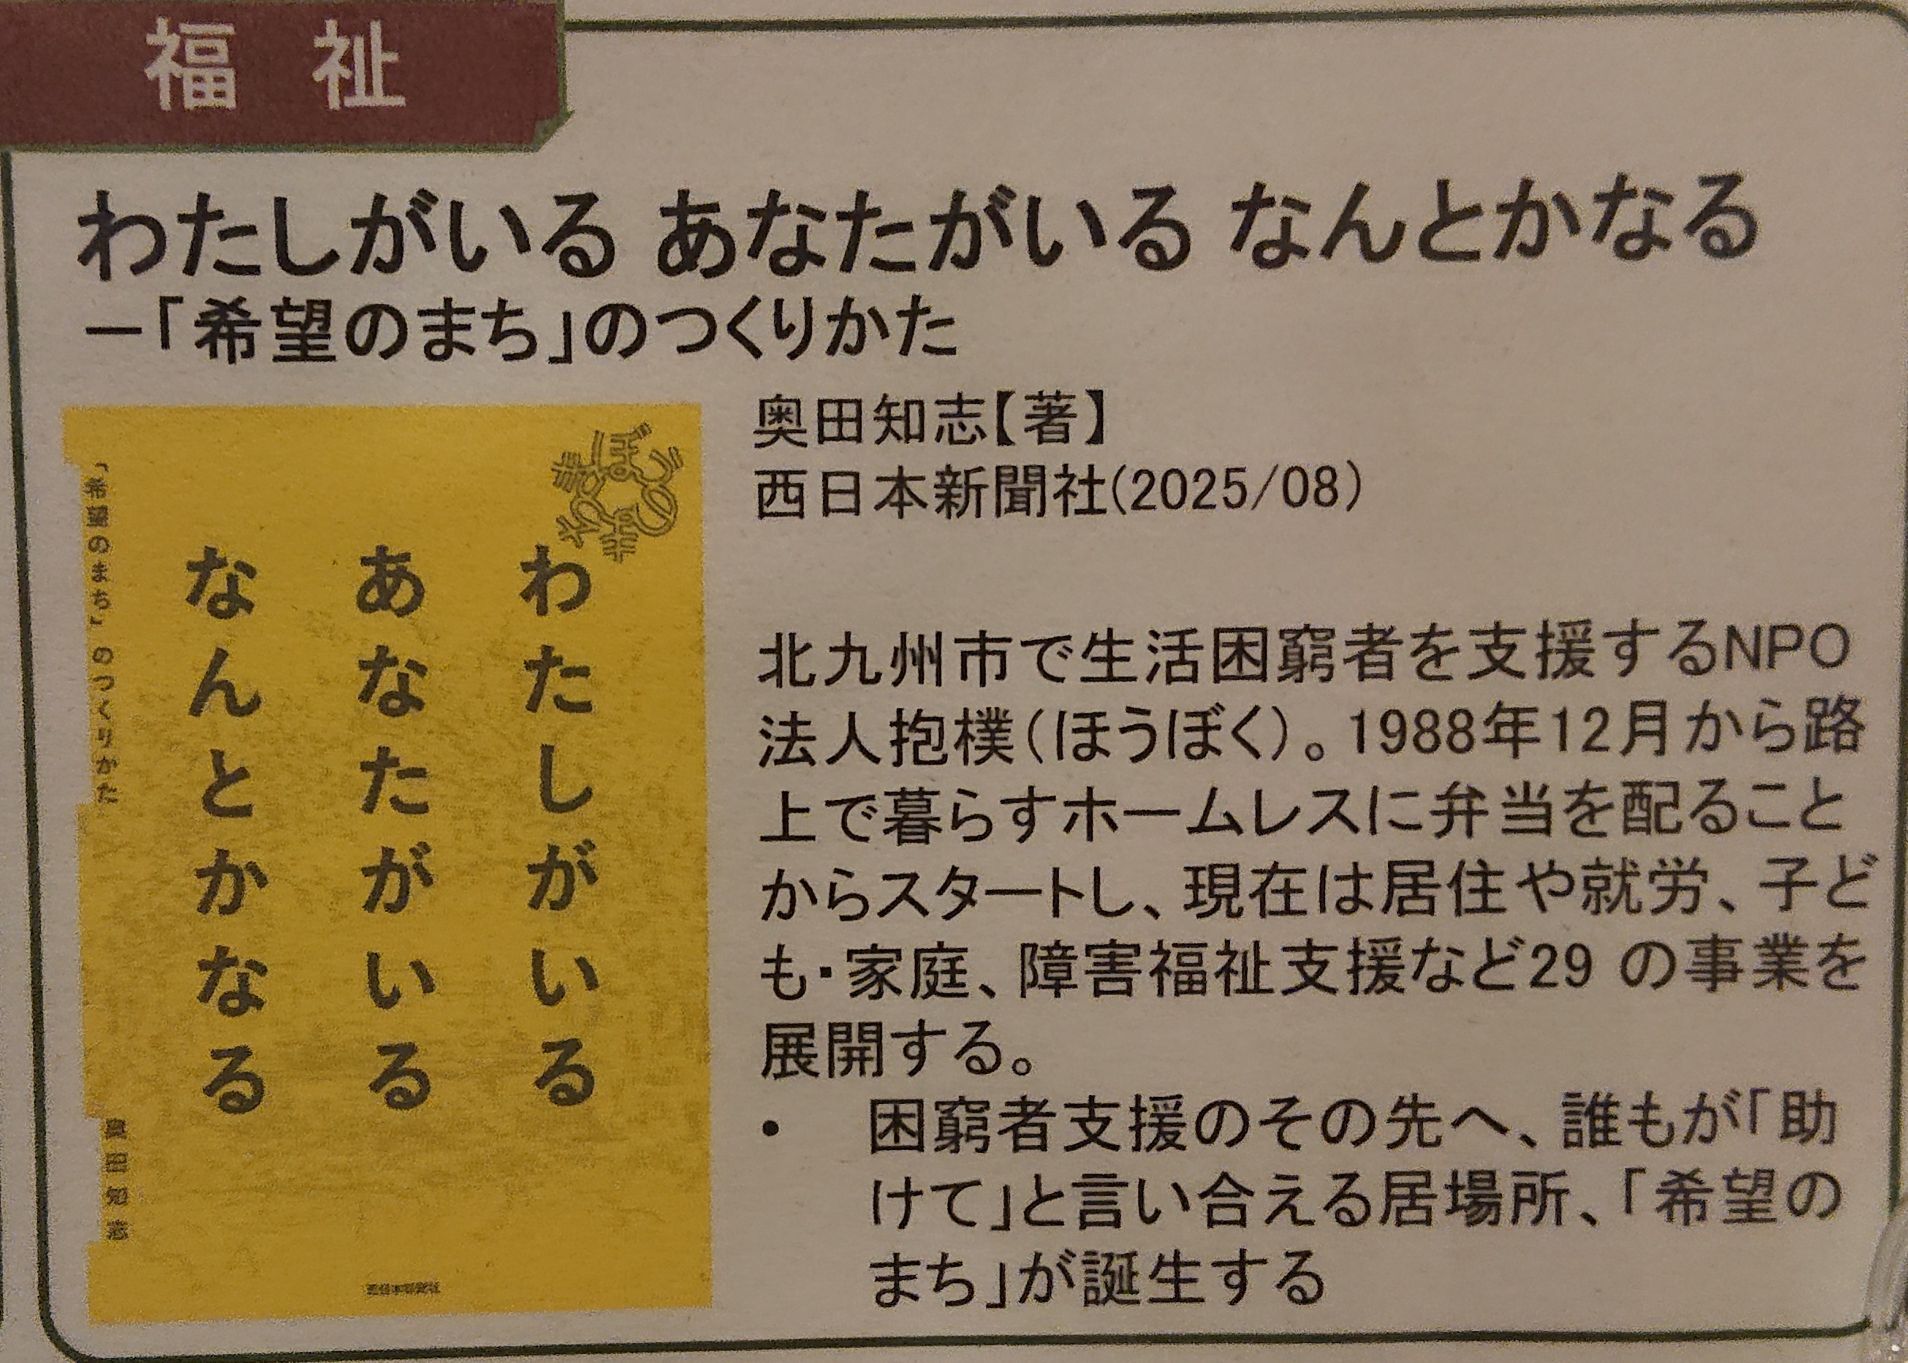 福祉
わたしがいる あなたがいる なんとかなる
－「希望のまち」のつくりかた
奥田知志【著】
西日本新聞社(2025/08)
北九州市で生活困窮者を支援するNPO
法人抱樸（ほうぼく）。1988年12月から路
上で暮らすホームレスに弁当を配ること
からスタートし、現在は居住や就労、子ど
も・家庭、障害福祉支援など29 の事業を
展開する。
• 困窮者支援のその先へ、誰もが「助
けて」と言い合える居場所、「希望の
まち」が誕生する
わたしがいる
あなたがいる
なんとかなる
「希望のまち」のつくりかた
奥田知志
西日本新聞社